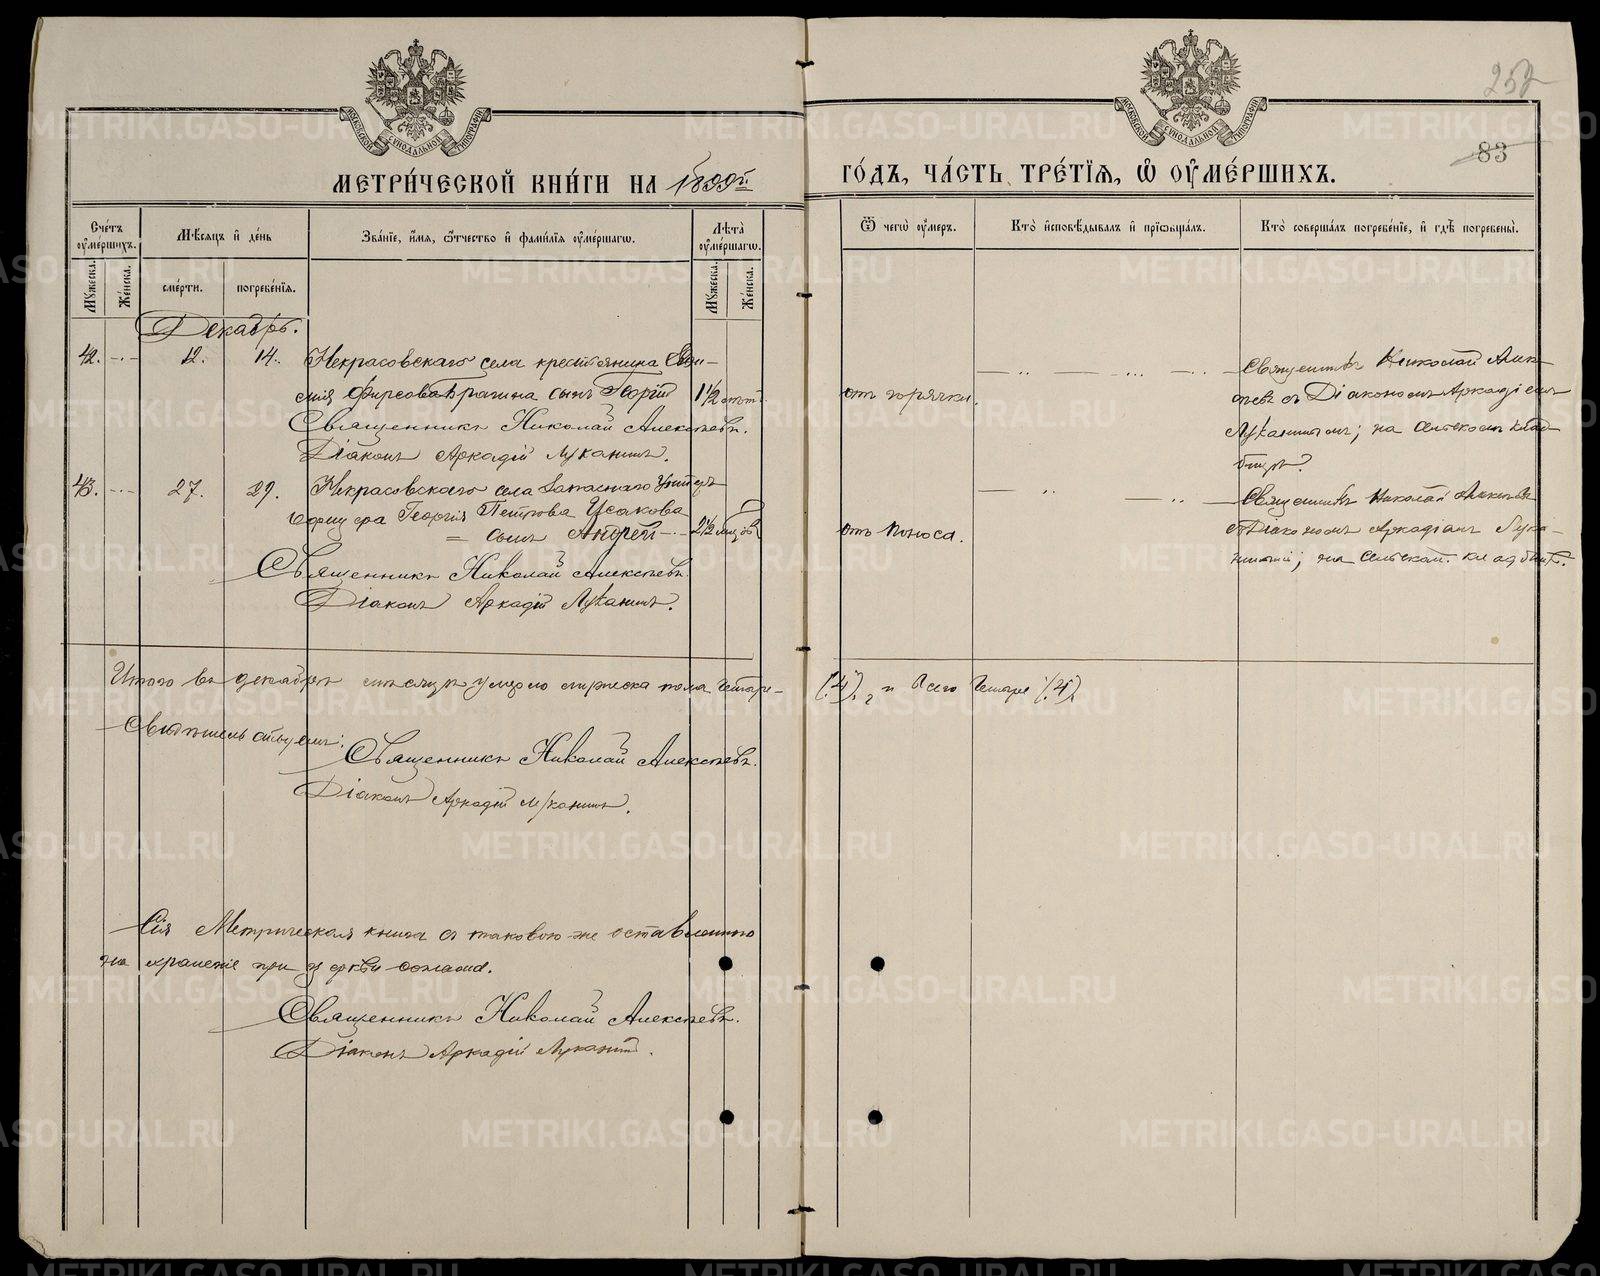 МОСКОВСКОЙ СѴНОДАЛЬНОЙ ТИПОГРАФІИ
МОСКОВСКОЙ СѴНОДАЛЬНОЙ ТИПОГРАФІИ
83
МЕТРИ́ЧЕСКОЙ КНИ́ГИ НА 1899 г.
ГО́ДЪ, ЧА́СТЬ ТРЕ́ТІѦ, Ѽ ОУ҆МЕ́РШИХЪ.
Счетъ оумершихъ.
Мужеска.
Женска.
Мѣсяцъ и день
смерти.
погребенія.
Званіе, имя, отчество и фамилія оумершагѡ.
Лѣта оумершагѡ.
Мужеска.
Женска.
Ѿ чегѡ оумеръ.
Кто исповѣдывалъ и пріѡбщалъ.
Кто совершалъ погребеніе, и гдѣ погребены.
Декабрь.
42. 12. 14. Некрасовскаго села крестьянина
Фирсова Брагина сынъ Георгій 1½
Священникъ Николай Алексѣевъ.
Діаконъ Аркадій Луканинъ.
отъ горячки.
Священникъ Николай Алек-
сѣевъ съ Діакономъ Аркадіемъ
Луканинымъ; на сельскомъ клад-
бищѣ.
43. 27. 29. Некрасовскаго села запаснаго унтеръ
офицера Георгія Петрова Исакова
= сынъ Андрей 2½ мѣсяцовъ
Священникъ Николай Алексѣевъ.
Діаконъ Аркадій Луканинъ.
отъ поноса.
Священникъ Николай Алексѣевъ
съ Діакономъ Аркадіемъ Лука-
нинымъ; на сельском. кладбищѣ.
Итого въ декабрѣ мѣсяцѣ умерло мужеска пола четыре (4), и всего четыре (4)
Свидѣтельствуемъ:
Священникъ Николай Алексѣевъ.
Діаконъ Аркадій Луканинъ.
Сія Метрическая книга съ таковою же оставленною
на храненіе при церкви согласна.
Священникъ Николай Алексѣевъ.
Діаконъ Аркадій Луканинъ.
METRIKI.GASO-URAL.RU